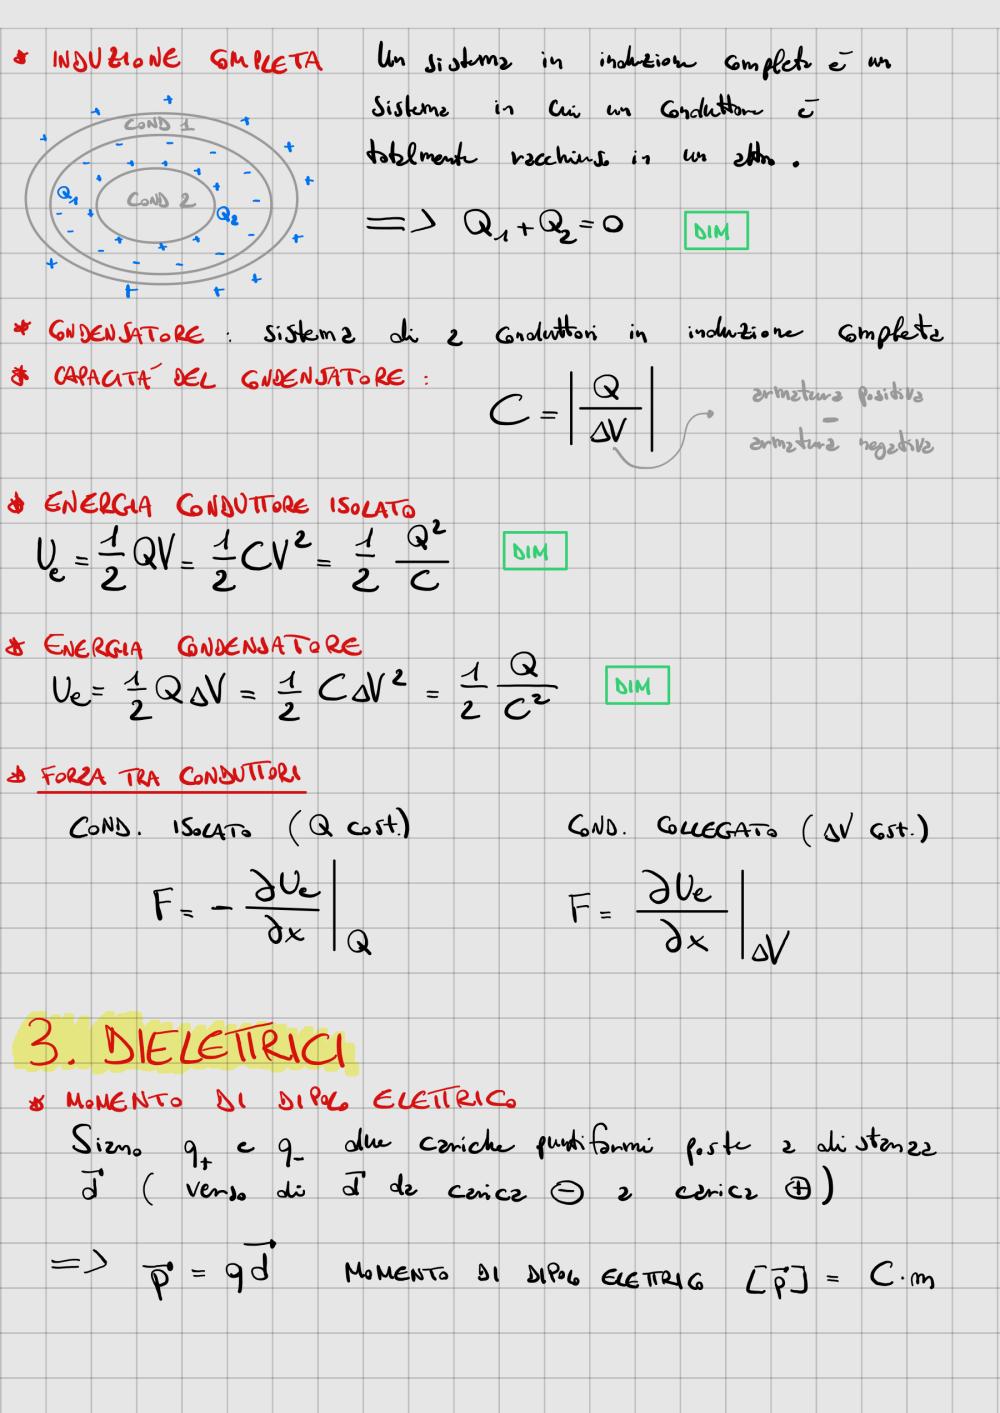 * INDUZIONE COMPLETA
Un sistema in induzione completa è un
sistema in cui un conduttore è
totalmente racchiuso in un altro.
COND 1
Q1
COND 2
Q2
=> Q₁ + Q₂ = 0 DIM
* CONDENSATORE : sistema di 2 conduttori in induzione completa
* CAPACITÀ DEL CONDENSATORE :
C = |Q/ΔV|
armatura positiva
-
armatura negativa
* ENERGIA CONDUTTORE ISOLATO
Ue = 1/2 QV = 1/2 CV² = 1/2 Q²/C DIM
* ENERGIA CONDENSATORE
Ue = 1/2 QΔV = 1/2 CΔV² = 1/2 Q/C² DIM
* FORZA TRA CONDUTTORI
COND. ISOLATO (Q cost.) COND. COLLEGATO (ΔV cost.)
F = - ∂Ue/∂x |Q F = ∂Ue/∂x |ΔV
3. DIELETTRICI
* MOMENTO DI DIPOLO ELETTRICO
Siano q₊ e q₋ due cariche puntiformi poste a distanza
d⃗ ( verso di d⃗ da carica ⊖ a carica ⊕)
=> p⃗ = qd⃗ MOMENTO DI DIPOLO ELETTRICO [p⃗] = C·m